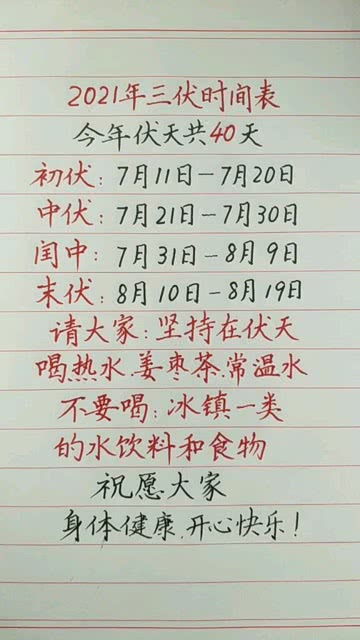 2021年三伏时间表
今年伏天共40天
初伏：7月11日—7月20日
中伏：7月21日—7月30日
闰中：7月31日—8月9日
末伏：8月10日—8月19日
请大家：坚持在伏天
喝热水.姜枣茶.常温水
不要喝：冰镇一类
的水饮料和食物
祝愿大家
身体健康.开心快乐！